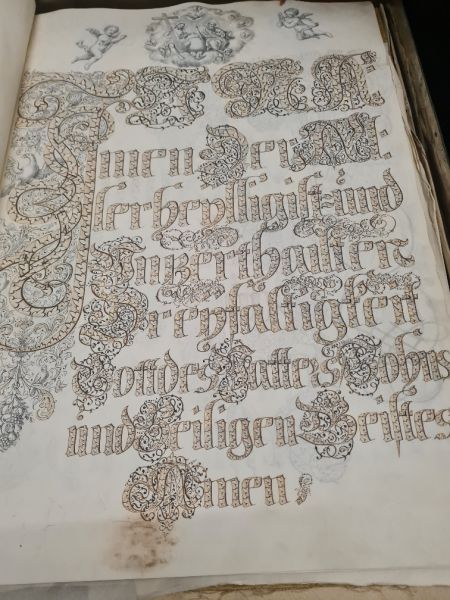 IN NA:
men Der Al:
lerheylligist: und
Unzerthailten
Dreyfaltigkeit
Gott des Vatters Sohns
und Heiligen Geistes
Amen